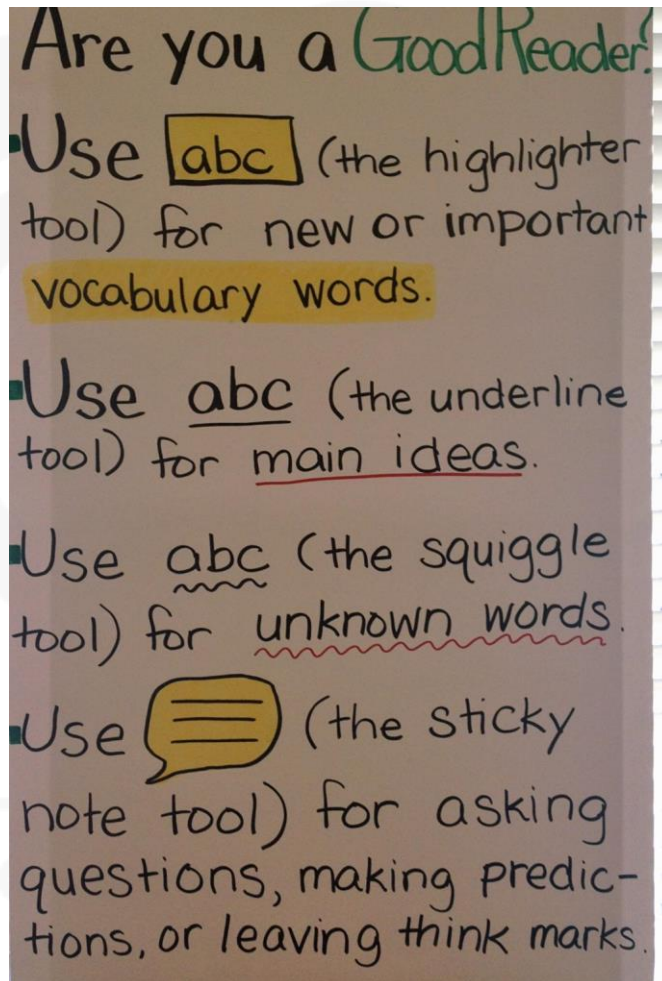 Are you a Good Reader?
Use abc (the highlighter
tool) for new or important
vocabulary words.
Use abc (the underline
tool) for main ideas.
Use abc (the squiggle
tool) for unknown words.
Use (the sticky
note tool) for asking
questions, making predic-
tions, or leaving think marks.